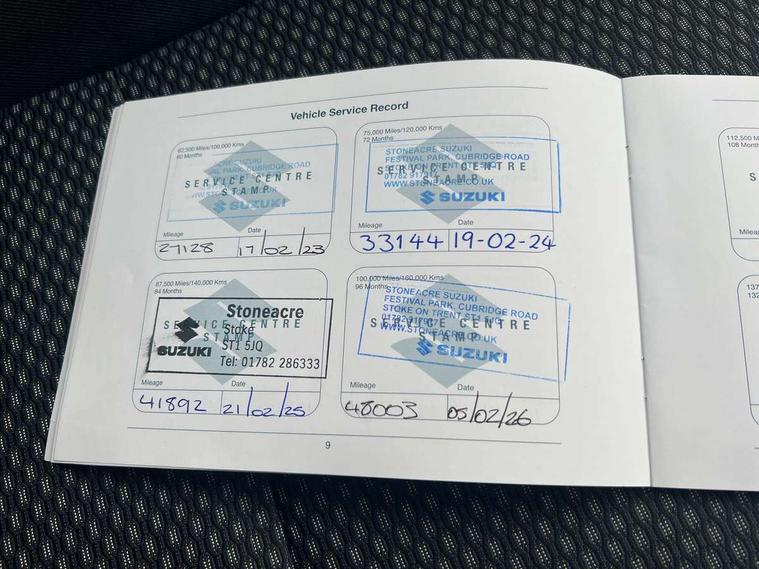 Vehicle Service Record
62,500 Miles/100,000 Kms
60 Months
SUZUKI
PARK, CUBRIDGE ROAD
SERVICE CENTRE
STAMP
SUZUKI
Mileage
Date
27128
17/02/23
75,000 Miles/120,000 Kms
72 Months
STONEACRE SUZUKI
FESTIVAL PARK, CUBRIDGE ROAD
SERVICE CENTRE
STAMP
WWW.STONEACRE.CO.UK
SUZUKI
Mileage
Date
33144
19-02-24
87,500 Miles/140,000 Kms
84 Months
Stoneacre
SERVICE CENTRE
Stoke
STAMP
ST1 5JQ
SUZUKI
Tel: 01782 286333
Mileage
Date
41892
21/02/25
100,000 Miles/160,000 Kms
96 Months
STONEACRE SUZUKI
FESTIVAL PARK, CUBRIDGE ROAD
STOKE ON TRENT ST1 5JQ
SERVICE CENTRE
WWW.STONEACRE.CO.UK
STAMP
SUZUKI
Mileage
Date
48003
05/02/26
9
112,500 M
108 Month
S
Mileag
137
132